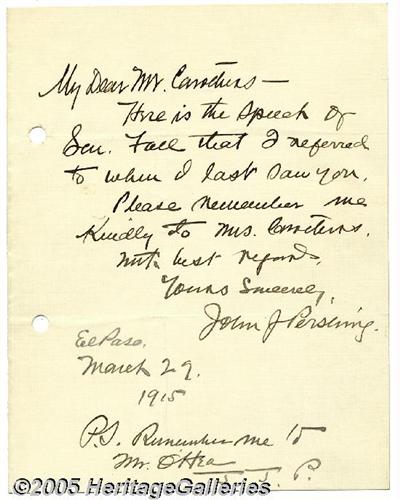 My Dear Mr. Carothers —
Here is the speech of
Sen. Fall that I referred
to when I last saw you.
Please remember me
kindly to Mrs. Carothers.
With best regards,
Yours Sincerely,
John J Pershing.
El Paso,
March 29.
1915
P.S. Remember me to
Mr. O'Hea
J. P.
©2005 HeritageGalleries